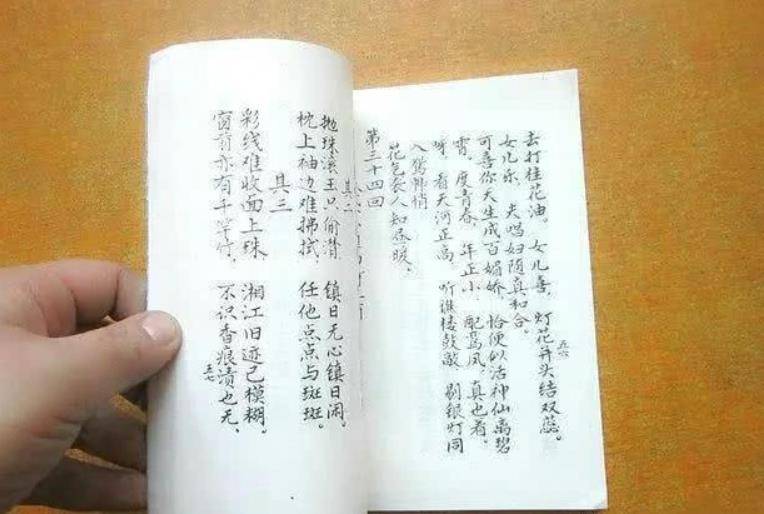 去打桂花油。女儿喜,灯花并头结双蕊。
五六
女儿乐,夫唱妇随真和合。
可喜你天生成百媚娇,恰便似活神仙离碧
霄。度青春,年正小,配鸾凤,真也着。
呀,看天河正高,听谯楼鼓敲,剔银灯同
入鸳帏悄
第三十四回
花气袭人知昼暖,
其二
抛珠滚玉只偷潸 镇日无心镇日闲。
枕上袖边难拂拭 任他点点与斑斑。
其三
彩线难收面上珠 湘江旧迹已模糊。
窗前亦有千竿竹, 不识香痕渍也无、
五七